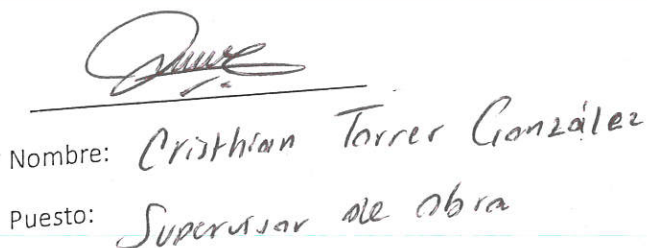 Nombre: Cristhian Torres González
Puesto: Supervisor de Obra